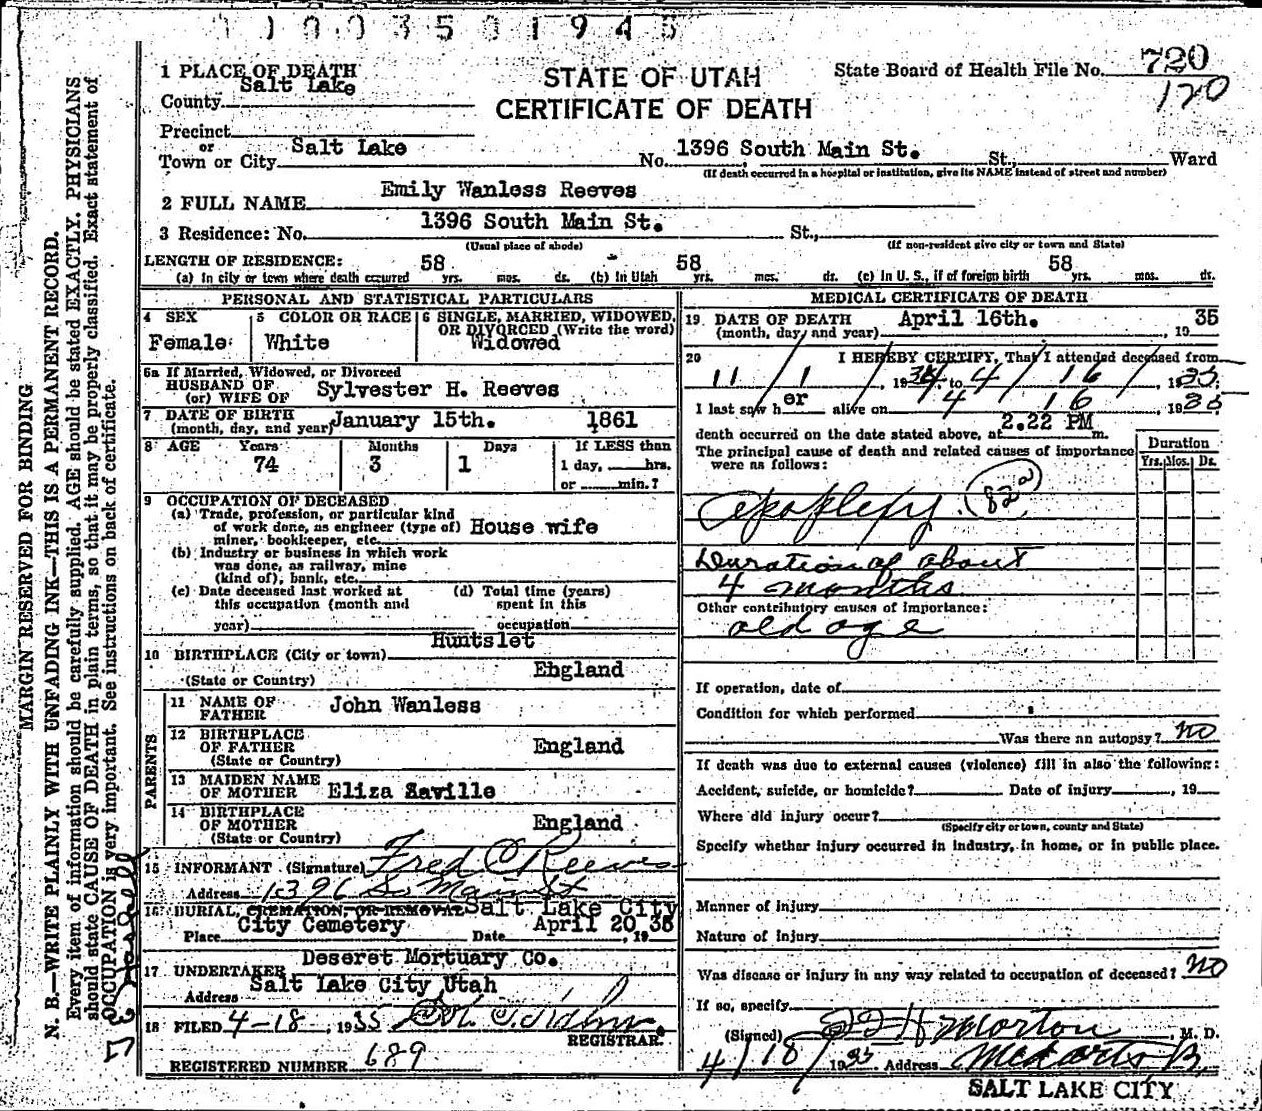 1003501945
1 PLACE OF DEATH
County Salt Lake
STATE OF UTAH
CERTIFICATE OF DEATH
State Board of Health File No. 720
120
Precinct
or
Town or City Salt Lake No. 1396 South Main St. St., Ward
(If death occurred in a hospital or institution, give its NAME instead of street and number)
2 FULL NAME Emily Wanless Reeves
3 Residence: No. 1396 South Main St. St.,
(Usual place of abode) (If non-resident give city or town and State)
LENGTH OF RESIDENCE:
(a) In city or town where death occurred 58 yrs. mos. ds. (b) In Utah 58 yrs. mos. ds. (c) In U. S., if of foreign birth 58 yrs. mos. ds.
PERSONAL AND STATISTICAL PARTICULARS
4 SEX
Female
5 COLOR OR RACE
White
6 SINGLE, MARRIED, WIDOWED,
OR DIVORCED (Write the word)
Widowed
6a If Married, Widowed, or Divorced
HUSBAND OF
(or) WIFE OF Sylvester H. Reeves
7 DATE OF BIRTH
(month, day, and year) January 15th. 1861
8 AGE Years Months Days If LESS than
74 3 1 1 day, hrs.
or min.?
9 OCCUPATION OF DECEASED
(a) Trade, profession, or particular kind
of work done, as engineer (type of) House wife
miner, bookkeeper, etc.
(b) Industry or business in which work
was done, as railway, mine
(kind of), bank, etc.
(c) Date deceased last worked at
this occupation (month and
year)
(d) Total time (years)
spent in this
occupation
10 BIRTHPLACE (City or town) Huntslet
(State or Country) Ehgland
PARENTS
11 NAME OF
FATHER John Wanless
12 BIRTHPLACE
OF FATHER England
(State or Country)
13 MAIDEN NAME
OF MOTHER Eliza Saville
14 BIRTHPLACE
OF MOTHER England
(State or Country)
15 INFORMANT (Signature) Fred C Reeves
Address 1396 So Main St
16 BURIAL, CREMATION, OR REMOVAL Salt Lake City
Place City Cemetery Date April 20, 1935
17 UNDERTAKER Deseret Mortuary Co.
Address Salt Lake City Utah
18 FILED 4-18, 1935
REGISTRAR.
REGISTERED NUMBER 689
MEDICAL CERTIFICATE OF DEATH
19 DATE OF DEATH April 16th. 1935
(month, day, and year)
20 I HEREBY CERTIFY, That I attended deceased from
11/1, 1934 to 4/16/, 1935
I last saw her alive on 4 16, 1935
death occurred on the date stated above, at 2.22 PM m.
The principal cause of death and related causes of importance
were as follows:
Duration
Yrs. Mos. Ds.
apoplexy. (82a)
Duration of about
4 months
Other contributory causes of importance:
old age
If operation, date of
Condition for which performed
Was there an autopsy? no
If death was due to external causes (violence) fill in also the following:
Accident, suicide, or homicide? Date of injury, 19
Where did injury occur?
(Specify city or town, county and State)
Specify whether injury occurred in industry, in home, or in public place.
Manner of injury
Nature of injury
Was disease or injury in any way related to occupation of deceased? no
If so, specify
(Signed) Morton, M. D.
4/18/1935 Address
SALT LAKE CITY
MARGIN RESERVED FOR BINDING
N. B.—WRITE PLAINLY WITH UNFADING INK—THIS IS A PERMANENT RECORD.
Every item of information should be carefully supplied. AGE should be stated EXACTLY. PHYSICIANS
should state CAUSE OF DEATH in plain terms, so that it may be properly classified. Exact statement of
OCCUPATION is very important. See instructions on back of certificate.